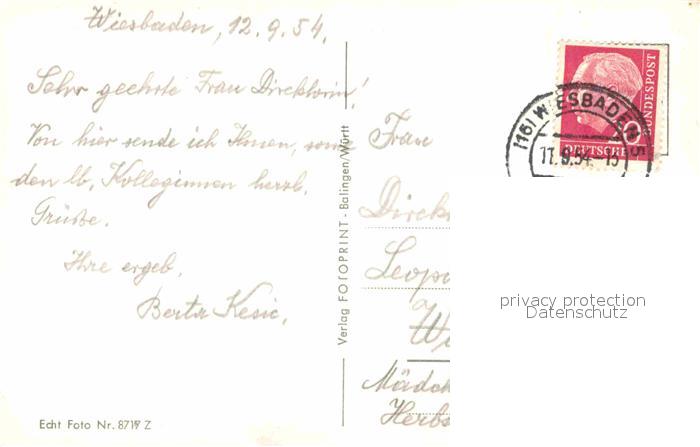 Wiesbaden, 12.9.54.
Sehr geehrte Frau Direktorin!
Von hier sende ich Ihnen, sowie
den lb. Kolleginnen herzl.
Grüße.
Ihre ergeb.
Berta Kesić.
Verlag FOTOPRINT - Balingen/Württ
Echt Foto Nr. 8717 Z
DEUTSCHE
BUNDESPOST
(16) WIESBADEN 5
11.9.54-15
Frau
Direk
Leopo
Wi
Mädch
Herbs
privacy protection
Datenschutz